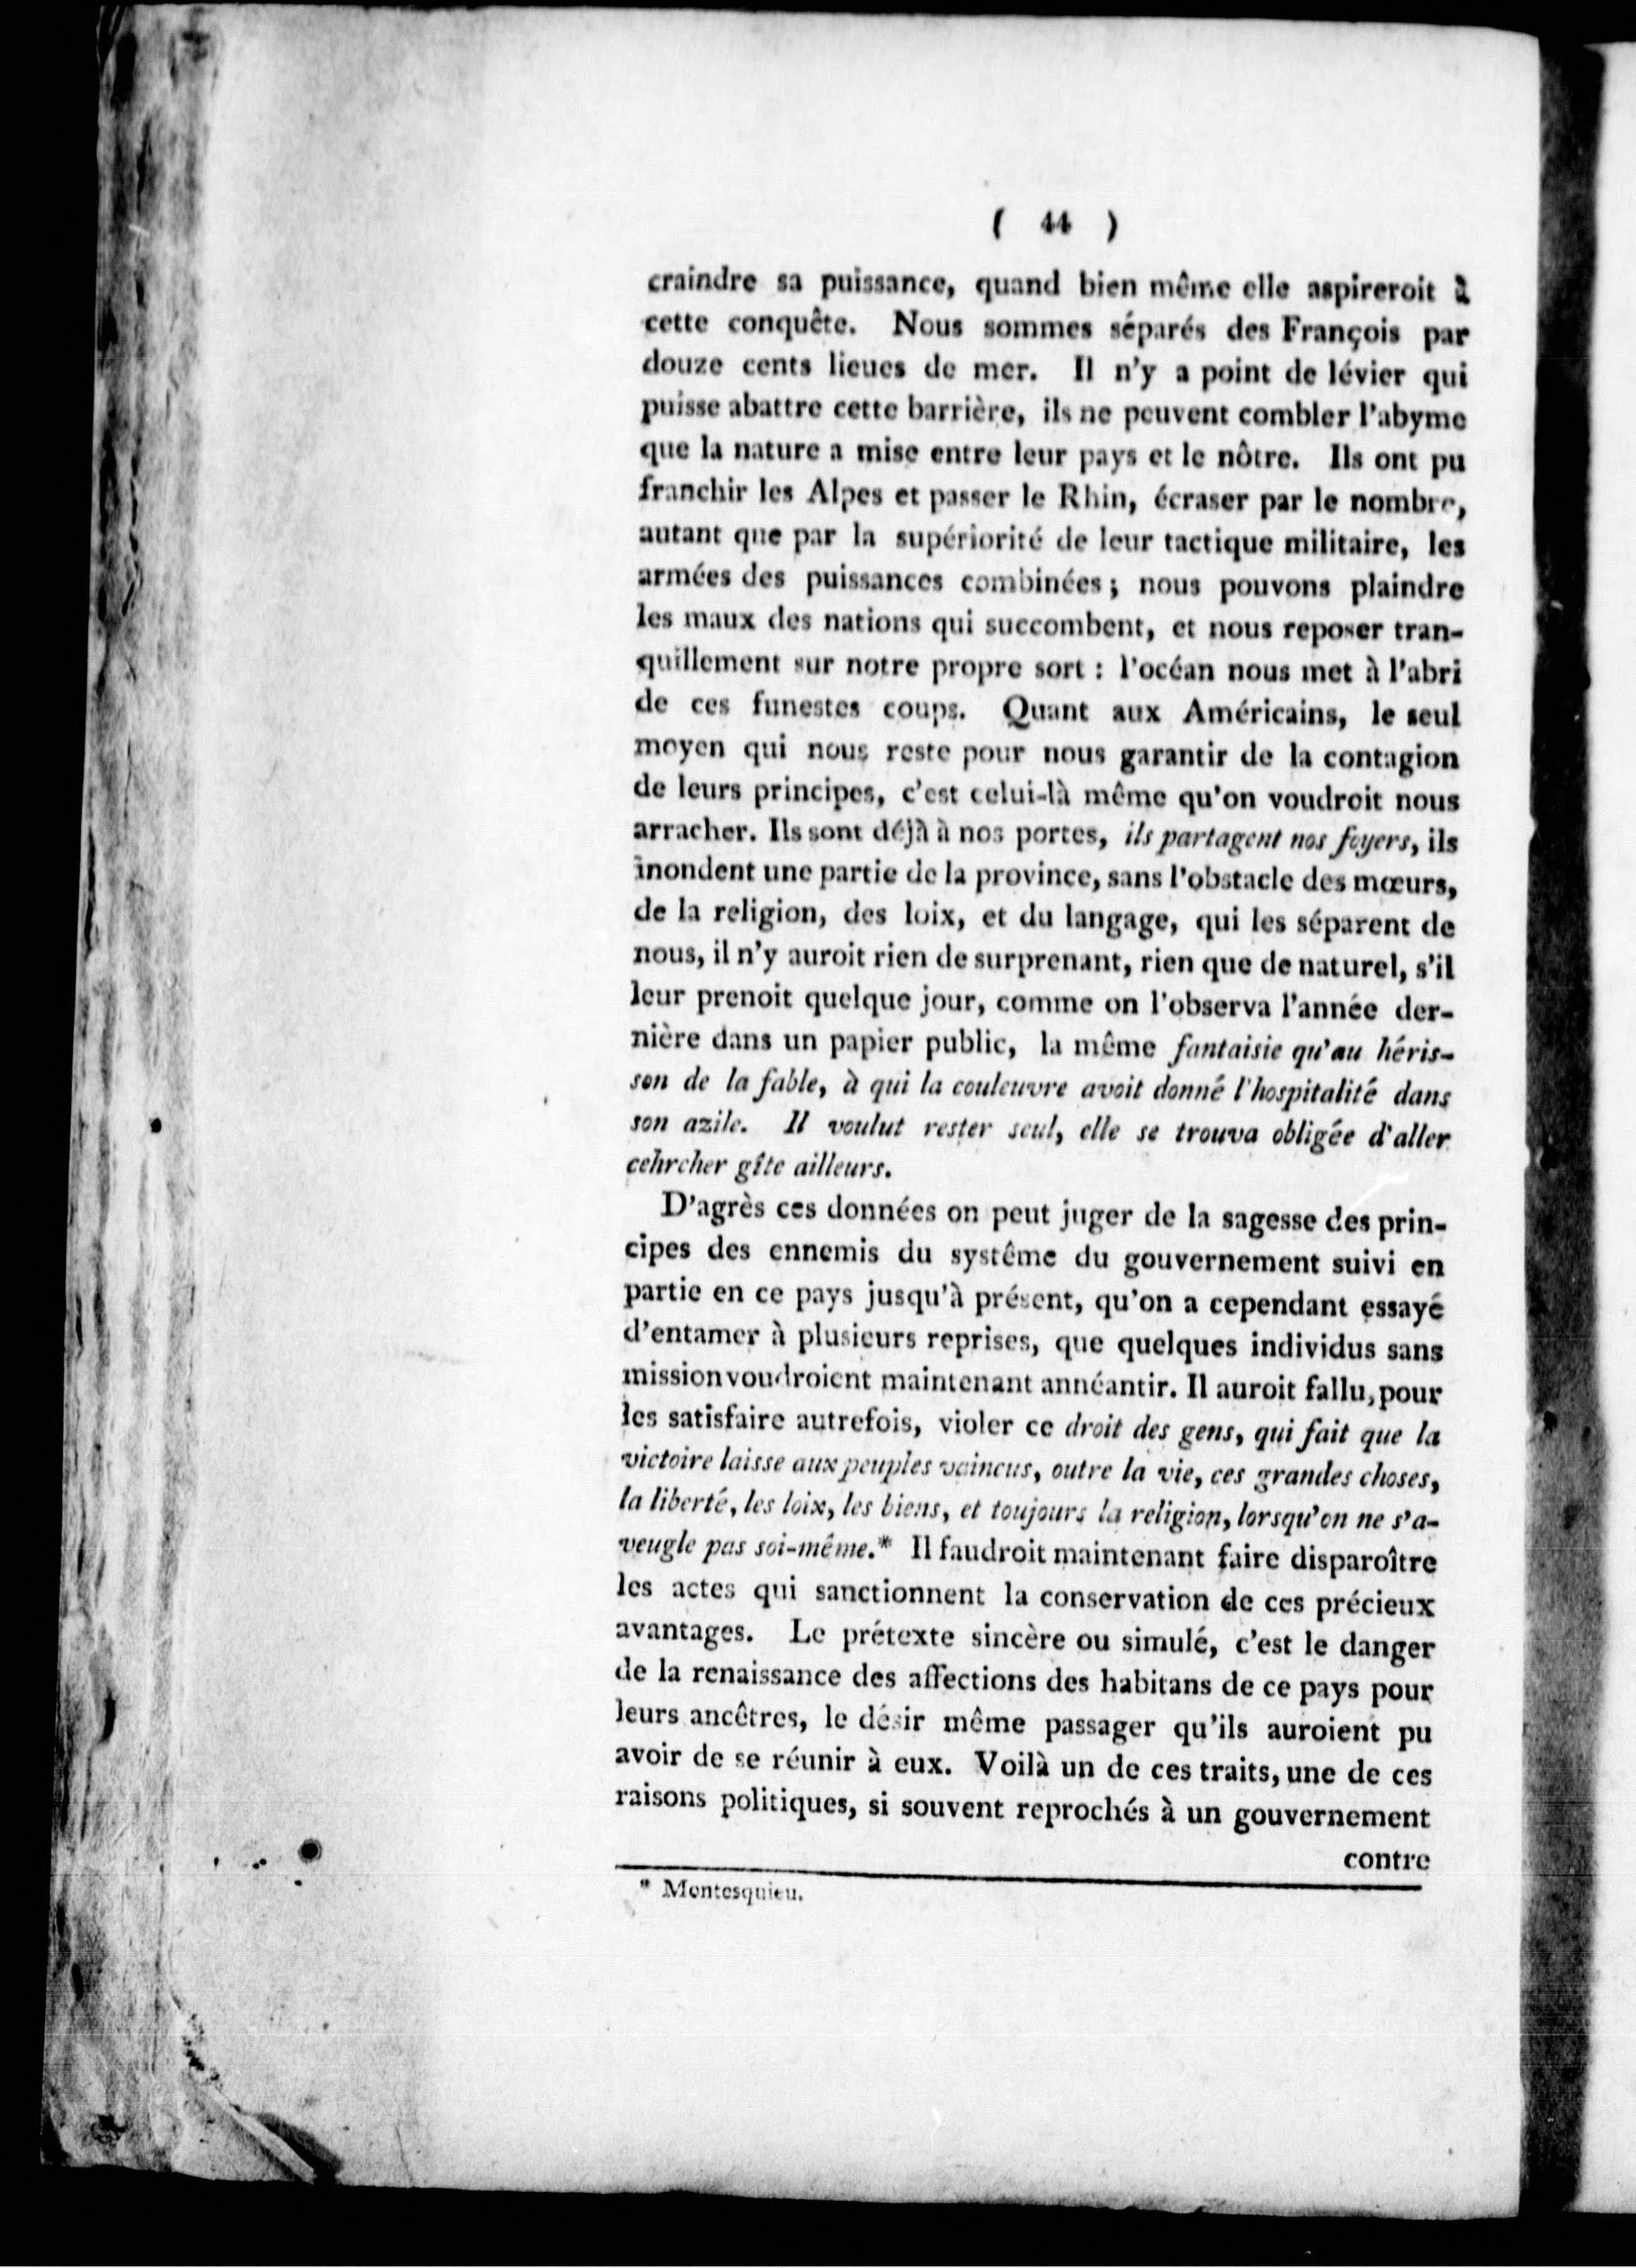 ( 44 )
craindre sa puissance, quand bien même elle aspireroit à
cette conquête. Nous sommes séparés des François par
douze cents lieues de mer. Il n'y a point de lévier qui
puisse abattre cette barrière, ils ne peuvent combler l'abyme
que la nature a mise entre leur pays et le nôtre. Ils ont pu
franchir les Alpes et passer le Rhin, écraser par le nombre,
autant que par la supériorité de leur tactique militaire, les
armées des puissances combinées ; nous pouvons plaindre
les maux des nations qui succombent, et nous reposer tran-
quillement sur notre propre sort : l'océan nous met à l'abri
de ces funestes coups. Quant aux Américains, le seul
moyen qui nous reste pour nous garantir de la contagion
de leurs principes, c'est celui-là même qu'on voudroit nous
arracher. Ils sont déjà à nos portes, ils partagent nos foyers, ils
inondent une partie de la province, sans l'obstacle des mœurs,
de la religion, des loix, et du langage, qui les séparent de
nous, il n'y auroit rien de surprenant, rien que de naturel, s'il
leur prenoit quelque jour, comme on l'observa l'année der-
nière dans un papier public, la même fantaisie qu'au héris-
son de la fable, à qui la couleuvre avoit donné l'hospitalité dans
son azile. Il voulut rester seul, elle se trouva obligée d'aller
cehrcher gîte ailleurs.
D'agrès ces données on peut juger de la sagesse des prin-
cipes des ennemis du systême du gouvernement suivi en
partie en ce pays jusqu'à présent, qu'on a cependant essayé
d'entamer à plusieurs reprises, que quelques individus sans
mission voudroient maintenant annéantir. Il auroit fallu, pour
les satisfaire autrefois, violer ce droit des gens, qui fait que la
victoire laisse aux peuples vaincus, outre la vie, ces grandes choses,
la liberté, les loix, les biens, et toujours la religion, lorsqu'on ne s'a-
veugle pas soi-même.* Il faudroit maintenant faire disparoître
les actes qui sanctionnent la conservation de ces précieux
avantages. Le prétexte sincère ou simulé, c'est le danger
de la renaissance des affections des habitans de ce pays pour
leurs ancêtres, le désir même passager qu'ils auroient pu
avoir de se réunir à eux. Voilà un de ces traits, une de ces
raisons politiques, si souvent reprochés à un gouvernement
contre
* Montesquieu.